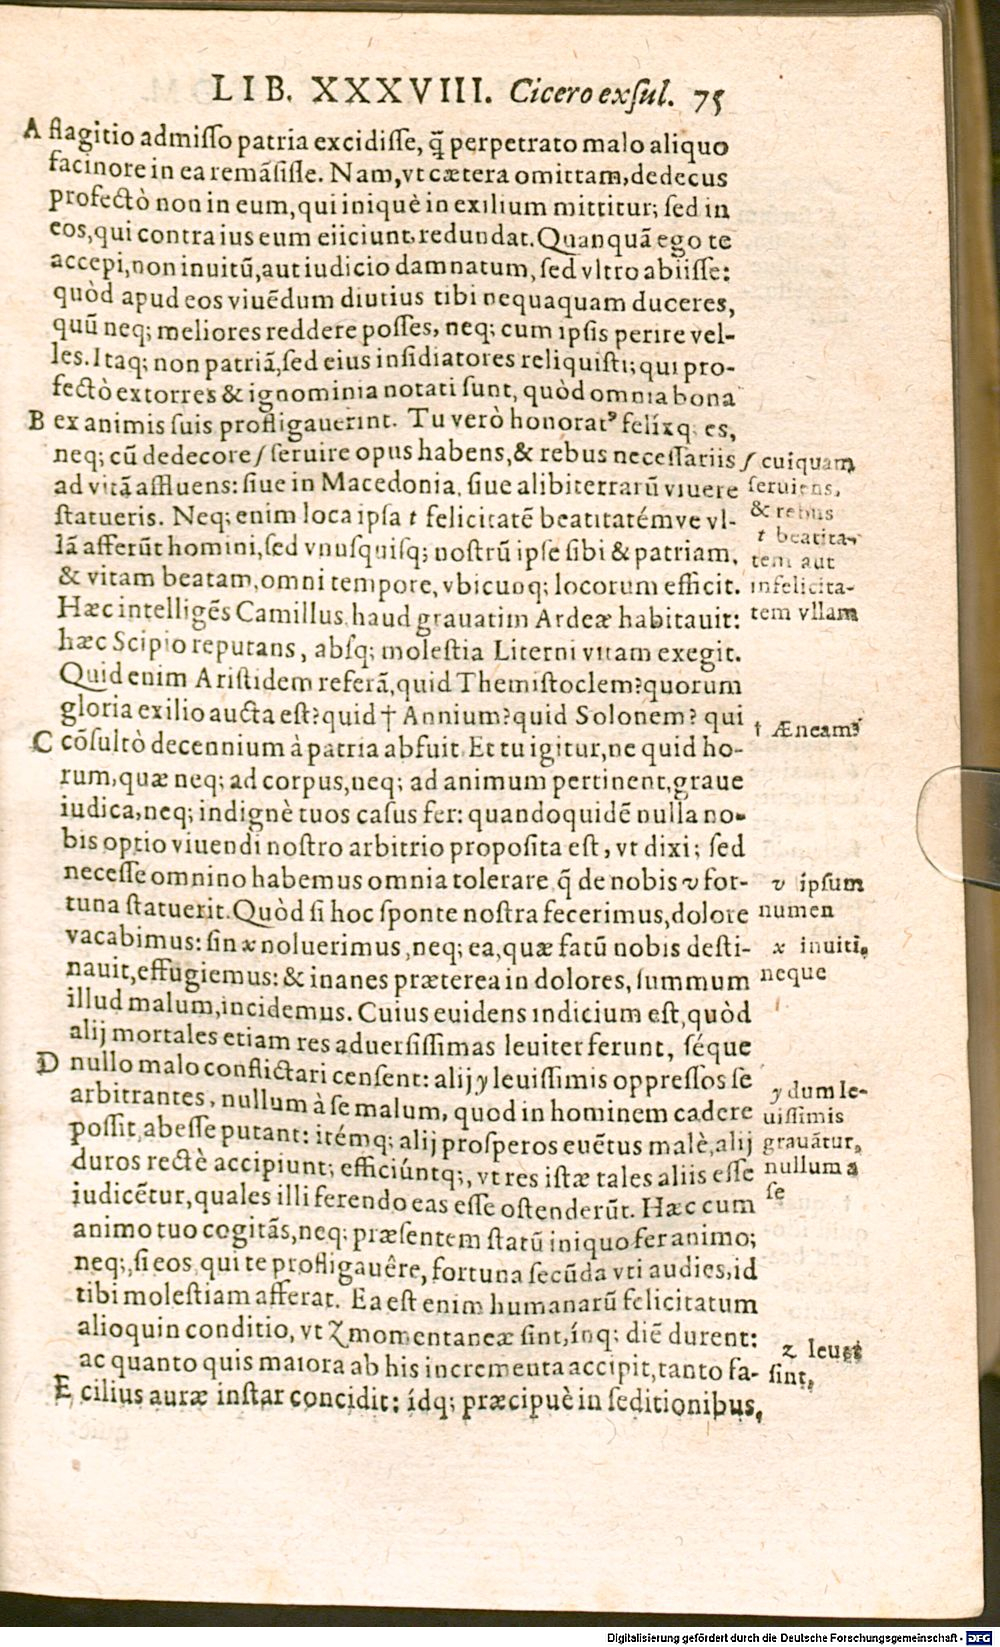 LIB. XXXVIII. Cicero exſul. 75
A flagitio admiſſo patria excidiſſe, q̃ perpetrato malo aliquo
facinore in ea remãſiſſe. Nam, vt cætera omittam, dedecus
profectò non in eum, qui iniquè in exilium mittitur; ſed in
eos, qui contra ius eum eiiciunt, redundat. Quanquã ego te
accepi, non inuitũ, aut iudicio damnatum, ſed vltro abiiſſe:
quòd apud eos viuẽdum diutius tibi nequaquam duceres,
quũ neq; meliores reddere poſſes, neq; cum ipſis perire vel-
les. Itaq; non patriã, ſed eius inſidiatores reliquiſti; qui pro-
fectò extorres & ignominia notati ſunt, quòd omnia bona
B ex animis ſuis profligauerint. Tu verò honorat⁹ felíxq; es,
neq; cũ dedecore ſ ſeruire opus habens, & rebus neceſſariis
ad vitã affluens: ſiue in Macedonia, ſiue alibi terrarũ viuere
ſtatueris. Neq; enim loca ipſa t felicitatẽ beatitatémve vl-
lã afferũt homini, ſed vnuſquiſq; noſtrũ ipſe ſibi & patriam,
& vitam beatam, omni tempore, vbicunq; locorum efficit.
Hæc intelligẽs Camillus, haud grauatim Ardeæ habitauit:
hæc Scipio reputans, abſq; moleſtia Literni vitam exegit.
Quid enim Ariſtidem referã, quid Themiſtoclem? quorum
gloria exilio aucta eſt? quid † Annium? quid Solonem? qui
C cõſultò decennium à patria abfuit. Et tu igitur, ne quid ho-
rum, quæ neq; ad corpus, neq; ad animum pertinent, graue
iudica, neq; indignè tuos caſus fer: quandoquidẽ nulla no-
bis optio viuendi noſtro arbitrio propoſita eſt, vt dixi; ſed
neceſſe omnino habemus omnia tolerare q̃ de nobis v for-
tuna ſtatuerit. Quòd ſi hoc ſponte noſtra fecerimus, dolore
vacabimus: ſin x noluerimus, neq; ea, quæ fatũ nobis deſti-
nauit, effugiemus: & inanes præterea in dolores, ſummum
illud malum, incidemus. Cuius euidens indicium eſt, quòd
alij mortales etiam res aduerſiſſimas leuiter ferunt, ſéque
D nullo malo conflictari cenſent: alij y leuiſſimis oppreſſos ſe
arbitrantes, nullum à ſe malum, quod in hominem cadere
poſſit, abeſſe putant: itémq; alij proſperos euẽtus malè, alij
duros rectè accipiunt; efficiúntq;, vt res iſtæ tales aliis eſſe
iudicẽtur, quales illi ferendo eas eſſe oſtenderũt. Hæc cum
animo tuo cogitãs, neq; præſentem ſtatũ iniquo fer animo;
neq;, ſi eos, qui te profligauêre, fortuna ſecũda vti audies, id
tibi moleſtiam afferat. Ea eſt enim humanarũ felicitatum
alioquin conditio, vt z momentaneæ ſint, ínq; diẽ durent:
ac quanto quis maiora ab his incrementa accipit, tanto fa-
E cilius auræ inſtar concidit: ídq; præcipuè in ſeditionibus,
ſ cuiquam
ſeruiens,
& rebus
t beatita-
tem aut
infelicita-
tem vllam
† Æneam?
v ipſum
numen
x inuiti,
neque
y dum le-
uiſſimis
grauãtur,
nullum a
ſe
z leues
ſint,
Digitalisierung gefördert durch die Deutsche Forschungsgemeinschaft - DFG